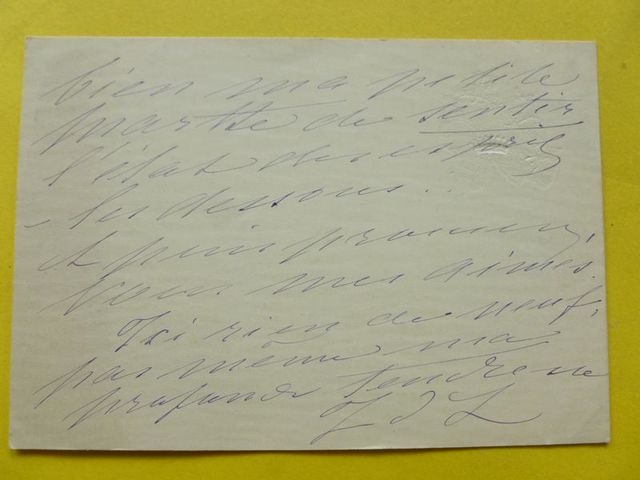 bien ma petite
Marthe de sentir
l'état des esprits
les dessous...
et puis
vous mes aimés.
Ici rien de neuf,
pas même ma
profonde tendresse